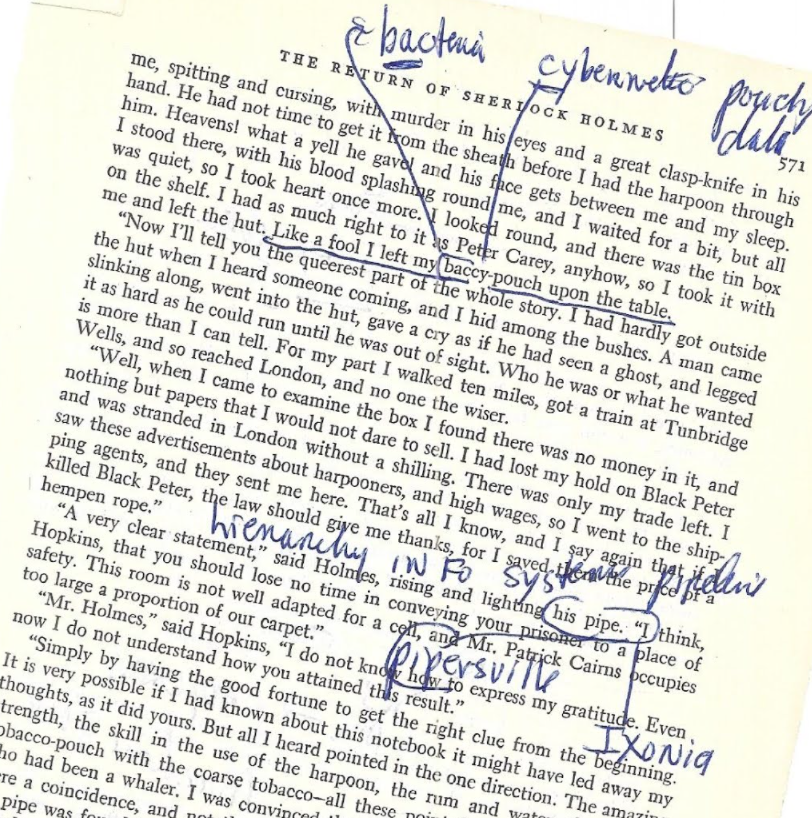 & bacteria
cybernetic pouch
data
THE RETURN OF SHERLOCK HOLMES
571
me, spitting and cursing, with murder in his eyes and a great clasp-knife in his
hand. He had not time to get it from the sheath before I had the harpoon through
him. Heavens! what a yell he gave! and his face gets between me and my sleep.
I stood there, with his blood splashing round me, and I waited for a bit, but all
was quiet, so I took heart once more. I looked round, and there was the tin box
on the shelf. I had as much right to it as Peter Carey, anyhow, so I took it with
me and left the hut. Like a fool I left my baccy-pouch upon the table.
“Now I'll tell you the queerest part of the whole story. I had hardly got outside
the hut when I heard someone coming, and I hid among the bushes. A man came
slinking along, went into the hut, gave a cry as if he had seen a ghost, and legged
it as hard as he could run until he was out of sight. Who he was or what he wanted
is more than I can tell. For my part I walked ten miles, got a train at Tunbridge
Wells, and so reached London, and no one the wiser.
“Well, when I came to examine the box I found there was no money in it, and
nothing but papers that I would not dare to sell. I had lost my hold on Black Peter
and was stranded in London without a shilling. There was only my trade left. I
saw these advertisements about harpooners, and high wages, so I went to the ship-
ping agents, and they sent me here. That's all I know, and I say again that if I
killed Black Peter, the law should give me thanks, for I saved them the price of a
hempen rope.”
hierarchy INFO systems
“A very clear statement,” said Holmes, rising and lighting his pipe. “I think,
Hopkins, that you should lose no time in conveying your prisoner to a place of
safety. This room is not well adapted for a cell, and Mr. Patrick Cairns occupies
too large a proportion of our carpet.”
pipersville
“Mr. Holmes,” said Hopkins, “I do not know how to express my gratitude. Even
now I do not understand how you attained this result.”
IXONIA
“Simply by having the good fortune to get the right clue from the beginning.
It is very possible if I had known about this notebook it might have led away my
thoughts, as it did yours. But all I heard pointed in the one direction. The amazing
trength, the skill in the use of the harpoon, the rum and water
obacco-pouch with the coarse tobacco—all these
ho had been a whaler. I was convinced
re a coincidence, and not
pipe was